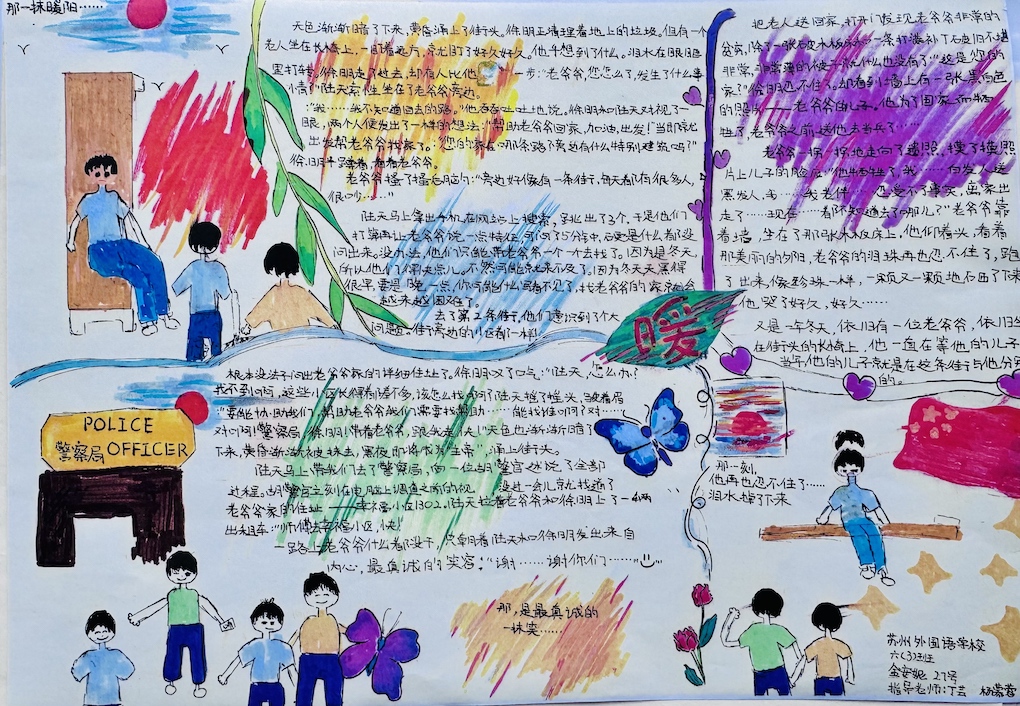 那一抹暖阳……
天色渐渐暗了下来,黄昏涌上了街头。徐明正清理着地上的垃圾。但有一个
老人坐在长椅上,一直盯着远方,常尤盯了好久好久。他不想到了什么。泪水在眼眶
里打转。徐明走了过去,却有人比他一步:“老爷爷,您怎么了,发生了什么事
情?”陆天奈性坐在了老爷爷旁边。
“我……我不知道回去的路。”他吞吞吐吐地说。徐明和陆天对视了一
眼,两个人便发出了一样的想法:“帮助老爷爷回家,加油,出发!”当即就
出发帮老爷爷找家了。:“您的家在哪条路?旁边有什么特别建筑吗?”
徐明平静看,看着老爷爷。
老爷爷搔了搔后脑勺:“旁边好像有一条街,每天都有很多人,
很吵……”
陆天马上拿出手机,在网站上搜索,至少出了3个,于是他们
打算再让老爷爷说一点特征,可问了5分钟,硬是什么都没
问出来。没办法,他们只能带老爷爷一个一个去找了。因为是冬天,
所以他们得快点儿。不然可能就来不及了。因为冬天天黑得
很早,要是晚一点,你可能什么都看不见了,找老爷爷的家就会
越来越困难了。
去了第2条街,他们意识到了个大
问题。街旁边的小区都一样!
根本没法子问出老爷爷家的详细住址了。徐明叹了口气:“陆天,怎么办?
找不到啊,这些小区长得都差不多,该怎么找啊?”陆天摇了摇头,皱着眉
“要能协助我们,帮助老爷爷我们需要找帮助……能找谁呢?对……
对啊!警察局!徐明!带着老爷爷,跟我走,快!”天色也渐渐渐暗了
下来,黄昏渐渐被抹去,黑夜即将成为“主宰”,涌上街头。
陆天马上带我们去了警察局,向一位胡警官述说了全部
过程。胡警官立刻在电脑上调查之前的视 没过一会儿就找着了
老爷爷家的住址——幸福小区1302。陆天拉着老爷爷和徐明上了一辆
出租车:“师傅去幸福小区,快!”
一路上老爷爷什么都没干,只朝着陆天和徐明发出来自
内心,最真诚的笑容:“谢……谢你们……”
那,是最真诚的
一抹笑……
把老人送回家,打开门发现老爷爷非常的
贫穷,除了一张破木板床和一条打满补丁破旧不堪
非常,非常薄的被子就什么也没有了“这是您的
家?”徐明忍不住了。却看到墙上有一张黑白色
的照片——老爷爷的儿子。他为了国家而牺
牲了,老爷爷之前送他去当兵了……
老爷爷一拐一拐地走向了遗照,摸了摸照
片上儿子的脸庞:“他牺牲了,我……白发人送
黑发人,我……我老伴……还受不了事实,离家出
走了……现在……都不知道去了哪儿?”老爷爷靠
着墙,坐在了那张木板床上,他们看头,看着
那美丽的夕阳,老爷爷的泪珠再也忍不住了,跑
了出来,像珍珠一样,一颗又一颗地石西了下来
他,哭了好久,好久……
又是一年冬天,依旧有一位老爷爷,依旧坐
在街头的长椅上,他一直在等他的儿子
当年他的儿子就是在这条街与他分别
的。
暖
POLICE
警察局 OFFICER
那一刻,
他再也忍不住了……
泪水掉了下来
苏州外国语学校
六(3)班
金安妮 27号
指导老师:丁芸 杨蓉蓉